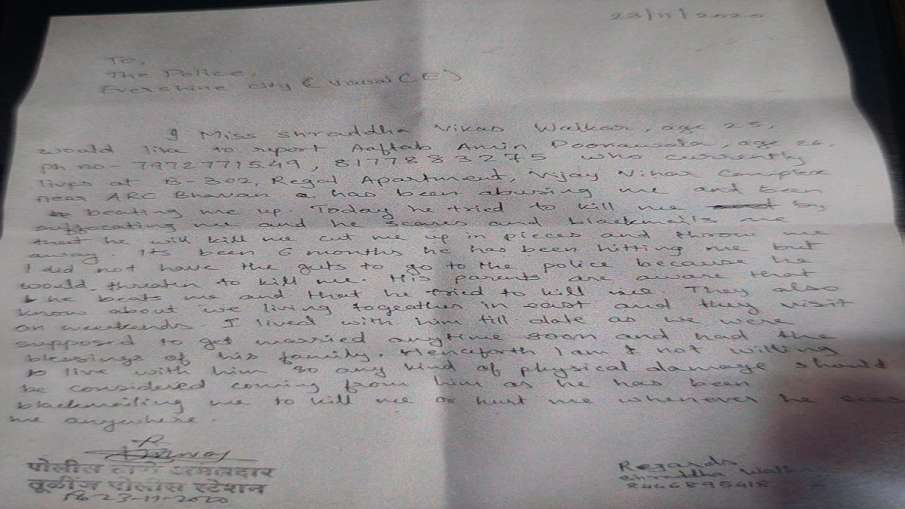 23/11/2020
To,
The Police,
Evershine city (Vasai (E)
I Miss Shraddha Vikas Walkar, age 25,
would like to report Aaftab Amin Poonawala, age 26,
ph no - 7972771549, 8177833275 who currently
lives at B-302, Regal Apartment, Vijay Vihar Complex
near ARC Bhavan has been abusing me and been
beating me up. Today he tried to kill me by
suffocating me and he scares and blackmails me
that he will kill me cut me up in pieces and throw me
away. Its been 6 months he has been hitting me but
I did not have the guts to go to the police because he
would threaten to kill me. His parents are aware that
he beats me and that he tried to kill me They also
know about we living together in east and they visit
on weekends. I lived with him till date as we were
supposed to get married anytime soon and had the
blessings of his family. Henceforth I am not willing
to live with him so any kind of physical damage should
be considered coming from him as he has been
blackmailing me to kill me or hurt me whenever he sees
me anywhere.
पोलीस ठाणे अंमलदार
तूळींज पोलीस स्टेशन
23-11-2020
Regards
Shraddha Walkar